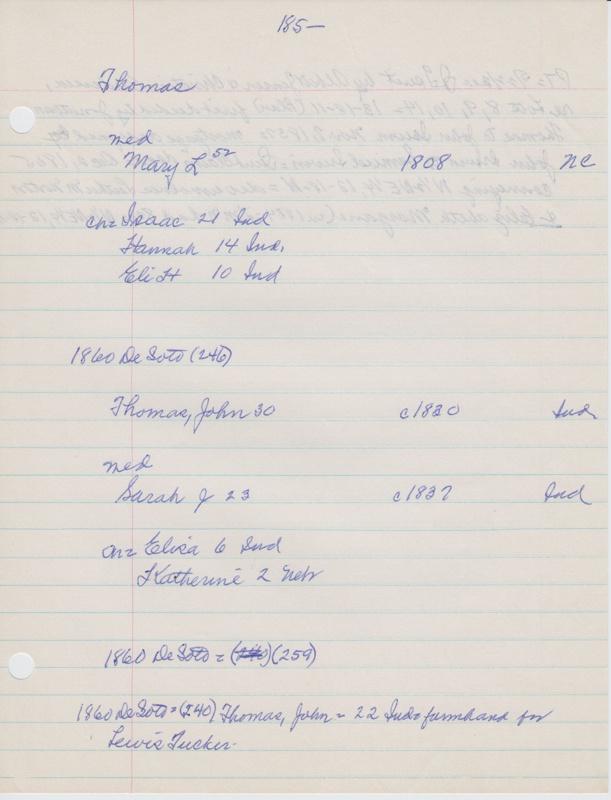 185—
Thomas
med
Mary L 52 1808 NC
ch= Isaac 21 Ind
Hannah 14 Ind.
Eli H 10 Ind
1860 De Soto (246)
Thomas, John 30 c1830 Ind
med
Sarah J 23 c1837 Ind
ch= Eliza 6 Ind
Katherine 2 Nebr
1860 De Soto = (259)
1860 De Soto = (240) Thomas, John = 22 Ind = farmhand for
Lewis Tucker.